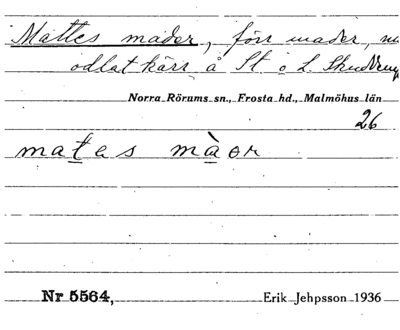 Mattes mader, förr mader, nu
odlat kärr å St. o L. Skuddrup
Norra Rörums sn., Frosta hd., Malmöhus län
26
mates màər
Nr 5564,
Erik Jehpsson 1936